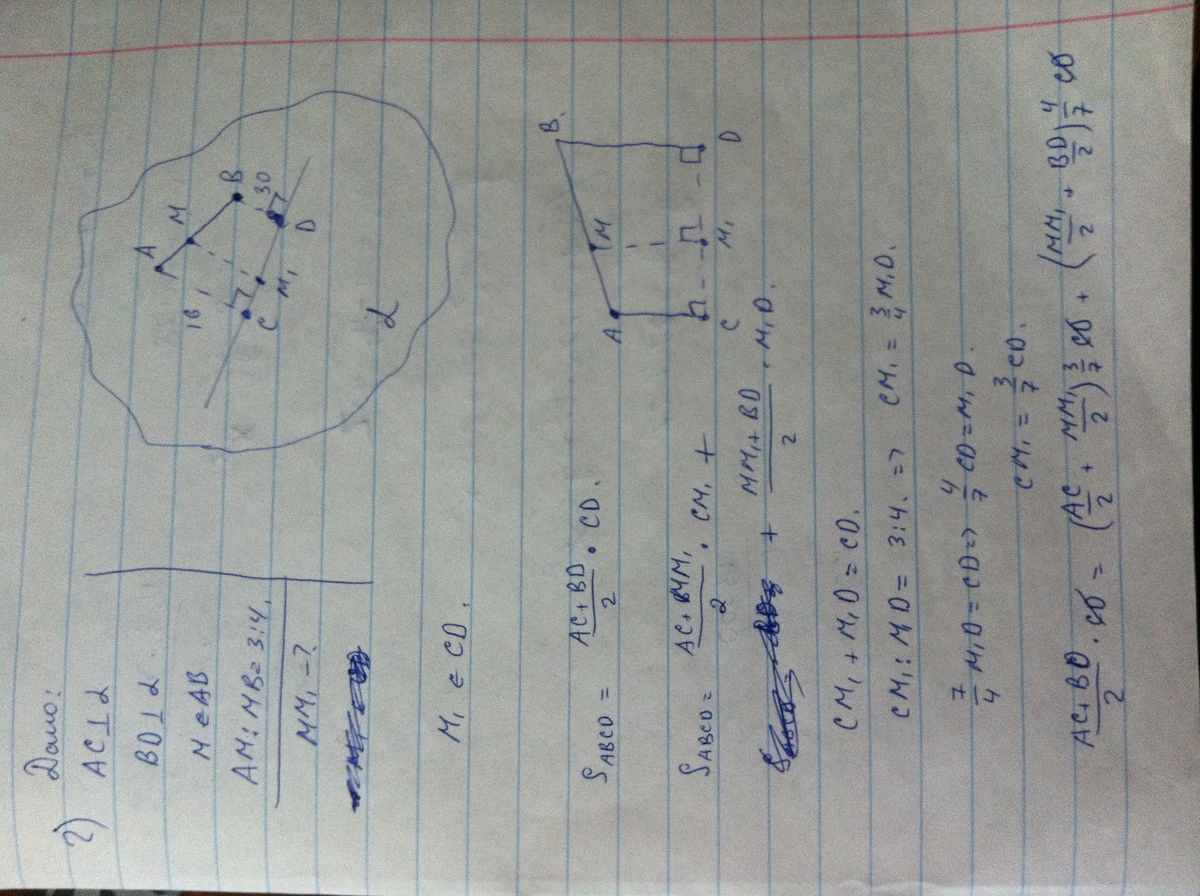 2) Дано:
AC ⊥ α
BD ⊥ α.
M ∈ AB
AM : MB = 3:4.
MM₁ - ?
M₁ ∈ CD.
A
M
B
16
30
C
M₁
D
α
B.
A
M
C
M₁
D
S_ABCD = (AC+BD)/2 · CD.
S_ABCD = (AC+MM₁)/2 · CM₁ +
+ (MM₁+BD)/2 · M₁D.
CM₁ + M₁D = CD.
CM₁ : M₁D = 3:4. => CM₁ = 3/4 M₁D.
7/4 M₁D = CD => 4/7 CD = M₁D.
CM₁ = 3/7 CD.
(AC+BD)/2 · CD = (AC/2 + MM₁/2) 3/7 CD + (MM₁/2 + BD/2) 4/7 CD